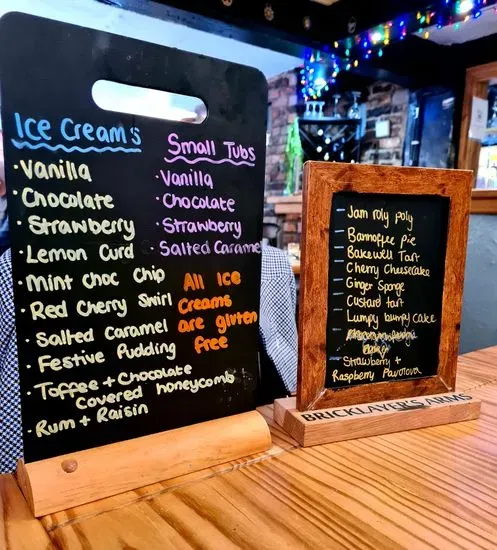 Ice Cream's
· Vanilla
· Chocolate
· Strawberry
· Lemon Curd
· Mint choc Chip
· Red Cherry Swirl
· Salted Caramel
· Festive Pudding
· Toffee + Chocolate
Covered honeycomb
· Rum + Raisin
Small Tubs
· Vanilla
· Chocolate
· Strawberry
· Salted Caramel
All Ice
Creams
are gluten
free
- Jam roly poly
- Bannoffee Pie
- Bakewell Tart
- Cherry Cheesecake
- Ginger Sponge
- Custard tart
- Lumpy bumpy cake
- Strawberry +
Raspberry Pavolova
BRICKLAYER'S ARMS